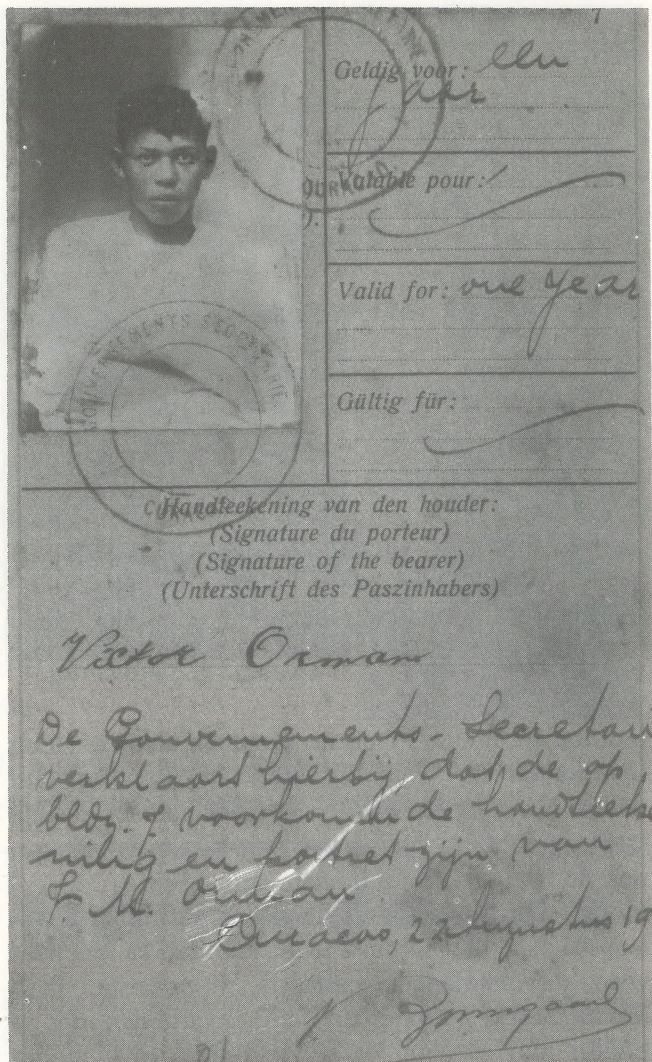 7
GOUVERNEMENTS SECRETARIE
CURAÇAO
Geldig voor: een
Jaar
Valable pour:
Valid for: one year
Gültig für:
GOUVERNEMENTS SECRETARIE
CURAÇAO
Handteekening van den houder:
(Signature du porteur)
(Signature of the bearer)
(Unterschrift des Paszinhabers)
Victor Orman
De Gouvernements-Secretari
verklaart hierbij dat de op
bldz. 7 voorkomende handteeke
ning en portret zijn van
M. Orman
Curacao, 22 Augustus 19